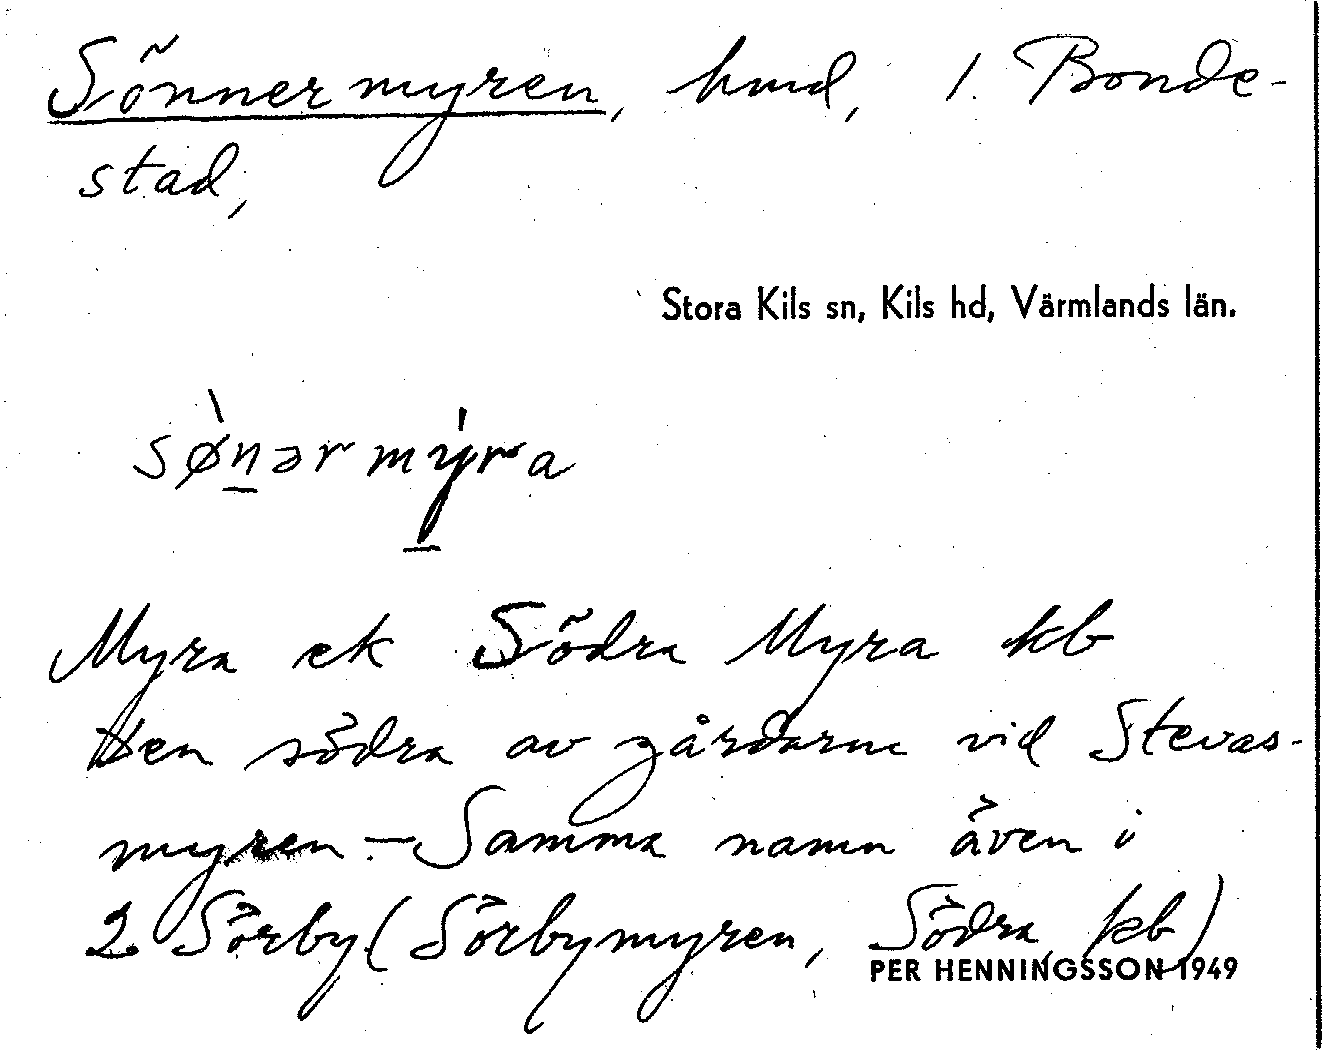 Sönnermyren, hmd, 1. Bonde-
stad,
Stora Kils sn, Kils hd, Värmlands län.
sø̀nərmy̍ra
Myra ek Södra Myra kb
Den södra av gårdarne vid Stevas-
myren - Samma namn även i
2 Sörby (Sörbymyren, Södra, kb)
PER HENNINGSSON 1949